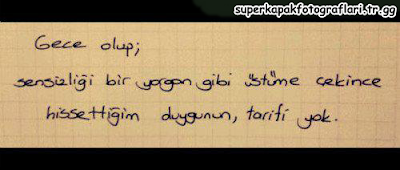 superkapakfotograflari.tr.gg
Gece olup;
sensizliği bir yorgan gibi üstüme çekince
hissettiğim duygunun, tarifi yok.